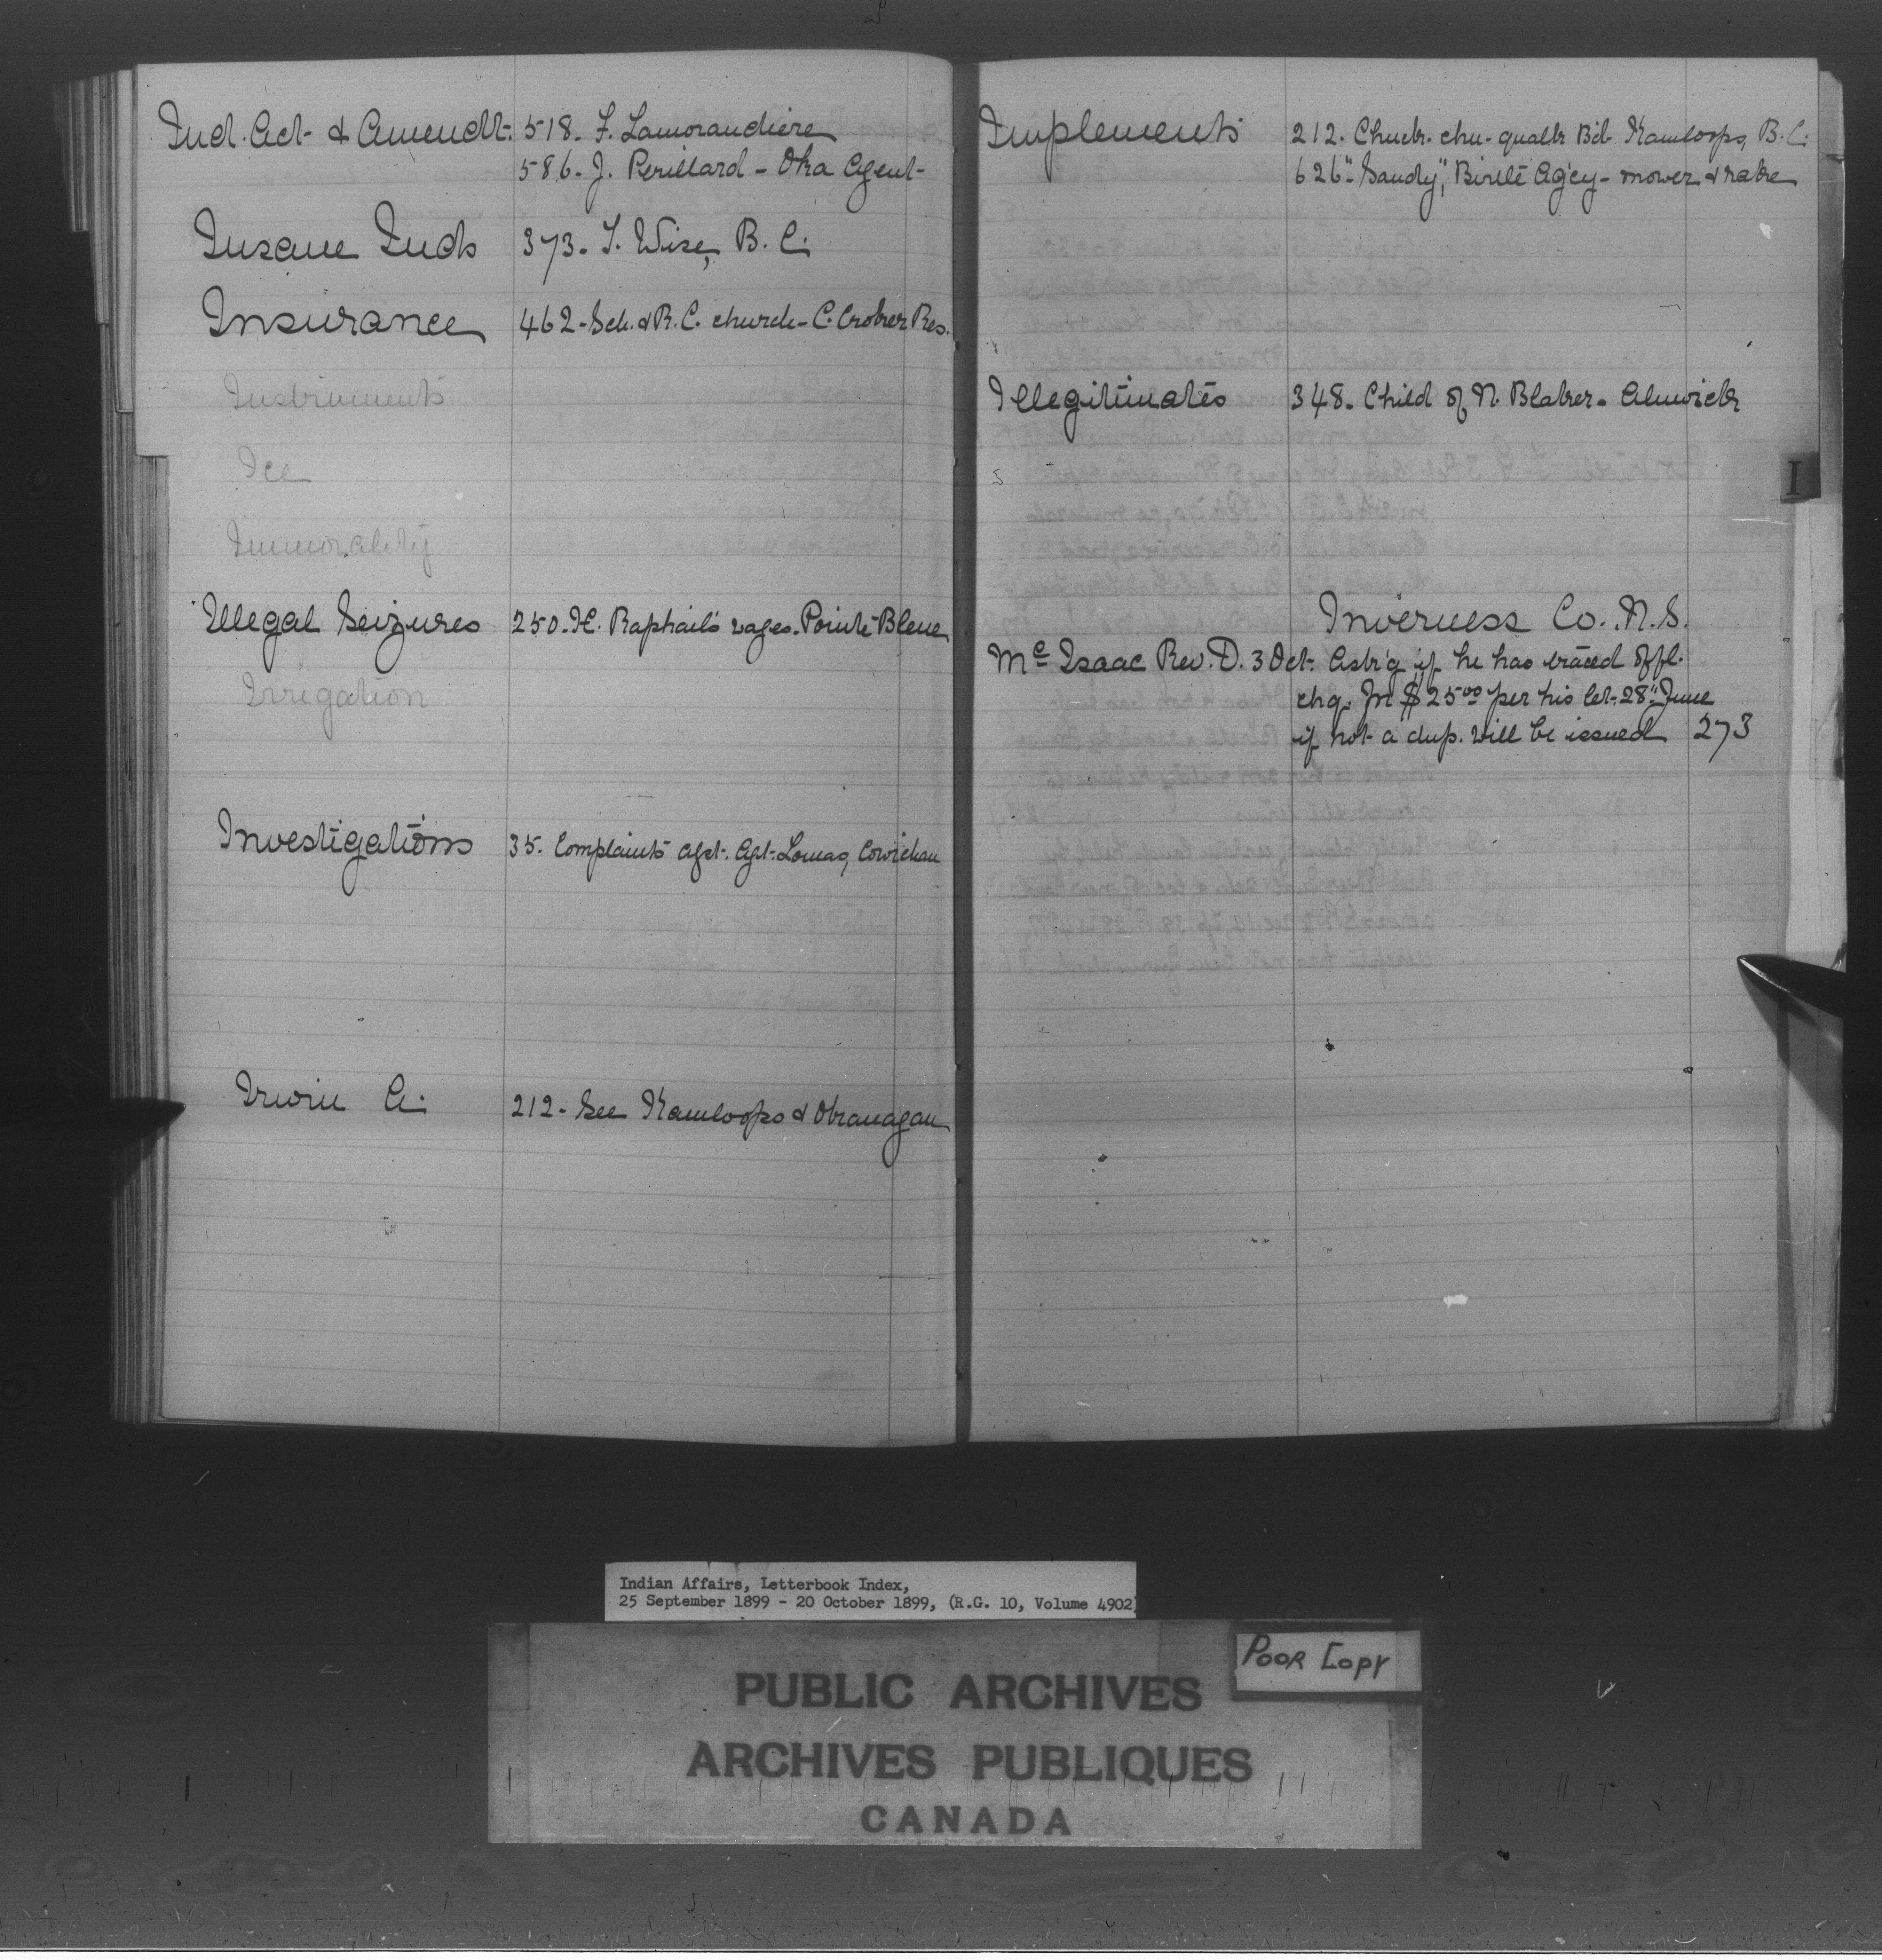 Ind. Act & Amendt. 518. F. Lamorandiere
586. J. Perillard - Oka Agent
Insane Inds 373. T. Wise, B. C.
Insurance 462. Sch. & R. C. church - C. Croker Res.
Instruments
Ice
Immorality
Illegal Seizures 250. H. Raphael's wages. Pointe-Bleue
Irrigation
Investigations 35. Complaints agst. Agt. Lomas, Cowichan
Irwin A. 212. See Kamloops & Okanagan
Implements 212. Chuck-chu-qualk Bd Kamloops, B. C.
626. "Sandy", Birtle Ag'cy - mower & rake
Illegitimates 348. Child of N. Blaker - Alnwick
I
Inverness Co. N. S.
Mc Isaac Rev. D. 3 Oct. Ask'g if he has traced offl.
chq. for $25.00 per his let. 28" June
if not a dup. will be issued 273
Indian Affairs, Letterbook Index,
25 September 1899 - 20 October 1899, (R.G. 10, Volume 4902)
POOR COPY
PUBLIC ARCHIVES
ARCHIVES PUBLIQUES
CANADA